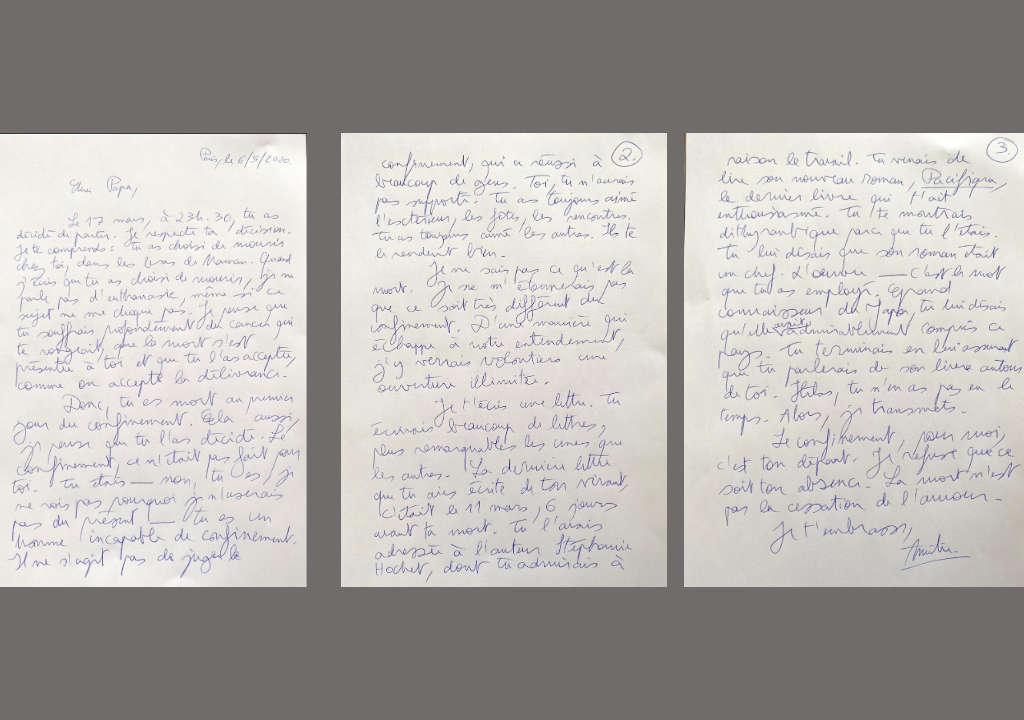 Paris, le 6/5/2020
Cher Papa,
Le 17 mars, à 23h.30, tu as
décidé de partir. Je respecte ta décision.
Je te comprends : tu as choisi de mourir
chez toi, dans les bras de Maman. Quand
j'écris que tu as choisi de mourir, je ne
parle pas d'euthanasie, même si ce
sujet ne me choque pas. Je pense que
tu souffrais profondément du cancer qui
te rongeait, que la mort s'est
présentée à toi et que tu l'as acceptée,
comme on accepte la délivrance.
Donc, tu es mort au premier
jour du confinement. Cela aussi,
je pense que tu l'as décidé. Le
confinement, ce n'était pas fait pour
toi. Tu étais — non, tu es, je
ne vois pas pourquoi je n'userais
pas du présent — tu es un
homme incapable de confinement.
Il ne s'agit pas de juger le
2.
confinement, qui a réussi à
beaucoup de gens. Toi, tu n'aurais
pas supporté. Tu as toujours aimé
l'extérieur, les fêtes, les rencontres.
Tu as toujours aimé les autres. Ils te
le rendent bien.
Je ne sais pas ce qu'est la
mort. Je ne m'étonnerais pas
que ce soit très différent du
confinement. D'une manière qui
échappe à notre entendement,
j'y verrais volontiers une
ouverture illimitée.
Je t'écris une lettre. Tu
écrivais beaucoup de lettres,
plus remarquables les unes que
les autres. La dernière lettre
que tu aies écrite de ton vivant,
c'était le 11 mars, 6 jours
avant ta mort. Tu l'avais
adressée à l'auteur Stéphanie
Hochet, dont tu admirais à
3.
raison le travail. Tu venais de
lire son nouveau roman, Pacifique,
le dernier livre qui t'ait
enthousiasmé. Tu te montrais
dithyrambique parce que tu l'étais.
Tu lui disais que son roman était
un chef-d'œuvre — c'est le mot
que tu as employé. Grand
connaisseur du Japon, tu lui disais
qu'elle avait admirablement compris ce
pays. Tu terminais en lui assurant
que tu parlerais de son livre autour
de toi. Hélas, tu n'en as pas eu le
temps. Alors, je transmets.
Le confinement, pour moi,
c'est ton départ. Je refuse que ce
soit ton absence. La mort n'est
pas la cessation de l'amour.
Je t'embrasse,
Amélie